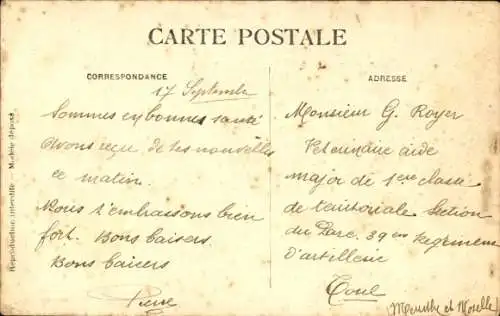 CARTE POSTALE
CORRESPONDANCE
17 Septembre
Sommes en bonnes santé
Avons reçu de tes nouvelles
ce matin.
Nous t'embrassons bien
fort. Bons baisers.
Bons baisers
Pierre
ADRESSE
Monsieur G. Royer
Veterinaire aide
major de 1ere classe
de territoriale Section
du Parc. 39em Regiment
d'artillerie
Toul
(Meurthe et Moselle)
Reproduction interdite Modèle déposé